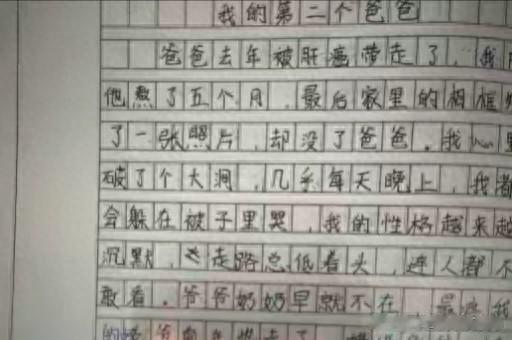 我的第二个爸爸
爸爸去年被肝癌带走了，我
他熬了五个月，最后家里的相框
了一张照片，却没了爸爸。我心里
破了个大洞，几乎每天晚上，我都
会躲在被子里哭，我的性格越来越
沉默，走路总低着头，连人都不
敢看。爷爷奶奶早就不在，最疼我
的